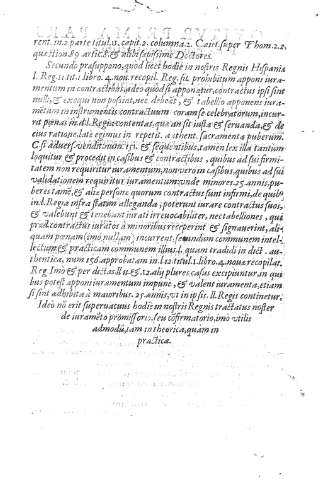 rent. in 2. parte titul. 11. capit. 2. columna 2. Caiet. super Thom. 2. 2.
quæstion. 89. artic. 8. & alij sæpissime Doctores.
Secundo præsuppono, quòd licet hodie in nostris Regnis Hispaniæ
l. Reg. 11. tit. 1. libro. 4. nou. recopil. Reg. sit prohibitum apponi iura-
mentum in contractibus, adeo quòd si apponatur, contractus ipsi sint
nulli, & exequi non possint, nec debeāt, & tabellio apponens iura-
mētum in instrumentis contractuum coram se celebratorum, incur-
rat pœnas in d. l. Regis contentas, quæ an sit iusta & seruanda, & de
eius ratione, latè eginus in repetit. athent. sacramenta puberum.
C. si aduers. vendit. num. 151. & sequentibus, tamen lex illa tantùm
loquitur & procedit in casibus & contractibus, quibus ad sui firmi-
tatem non requiritur iuramentum, non vero in casibus, quibus ad sui
validationem requiritur iuramentum: vnde minores 25. annis, pu-
beres tamē, & aliæ personæ quorum contractus sunt infirmi, de quib⁹
in d. l. Regia infra statim alleganda, poterunt iurare contractus suos,
& valebunt & tenebunt iurati irreuocabiliter, nec tabelliones, qui
prædictorum contractus iuratos à minoribus receperint & signauerint, ali-
quam pœnam (imò nullam) incurrent, secundùm communem intel-
lectum & practicam communem illius l. quam tradidi in dict. au-
thentica, num 156. approbatam in l. 12. titul. 1. libro. 4. nouæ recopilat.
Reg. Imò & per dictas ll. 11. & 12. alij plures casus excipiuntur, in qui
bus potest apponi iuramentum impunè, & valent iuramenta, etiam
si sint adhibita à maioribus 25. annis, vt in ipsis ll. Regijs continetur.
Ideò nō erit superuacuus hodie in nostris Regnis tractatus noster
de iuramēto promissorio, seu cōfirmatorio, imò vtilis
admodū, tam in theorica, quàm in
practica.